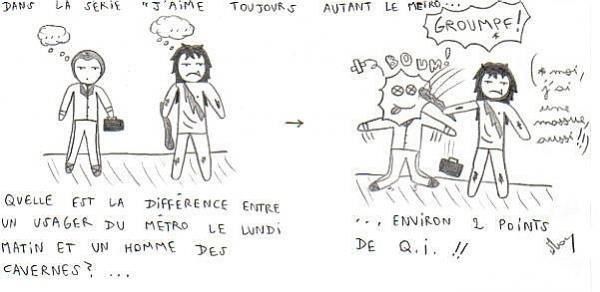 DANS LA SERIE "J'AIME TOUJOURS AUTANT LE METRO...
...
...
QUELLE EST LA DIFFÉRENCE ENTRE
UN USAGER DU MÉTRO LE LUNDI
MATIN ET UN HOMME DES
CAVERNES? ...
GROUMPF!
*
BOUM!
(* moi,
j'ai
une
massue
aussi!!)
... ENVIRON 2 POINTS
DE Q.i. !!